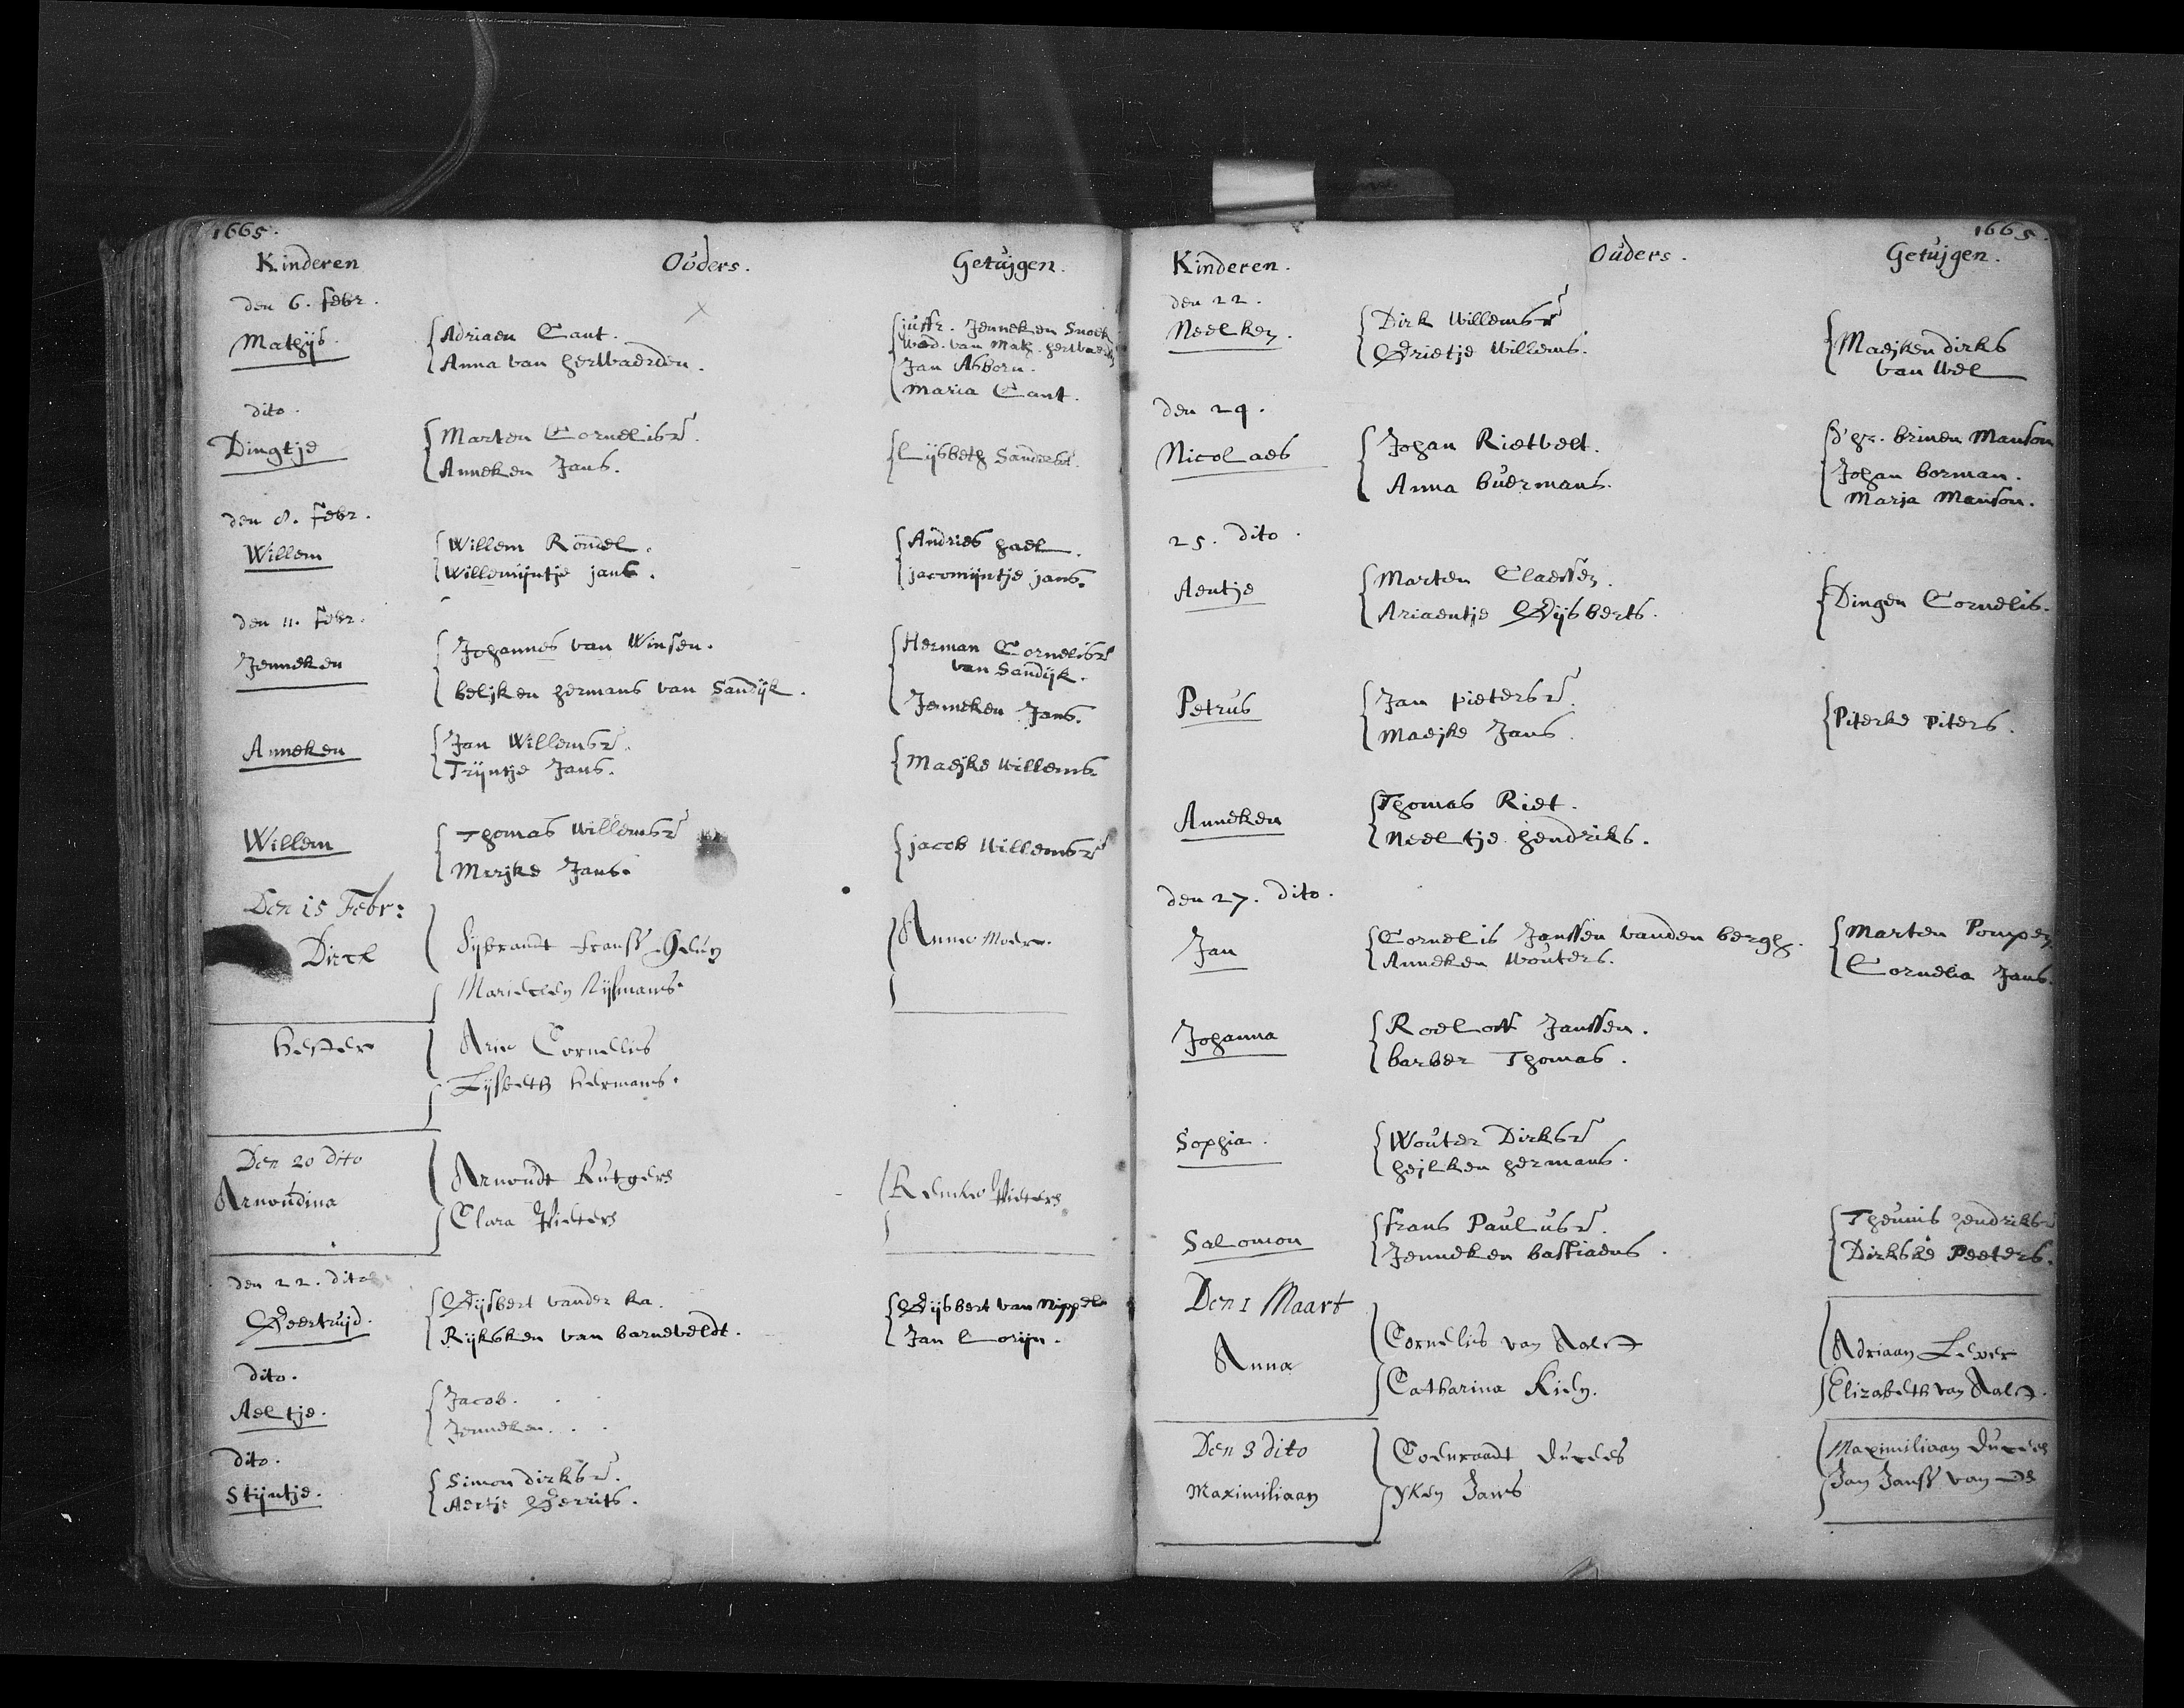 1665.
Kinderen Ouders. Getuijgen.
den 6. febr.
Mathijs.
Adriaen Cant.
Anna van herwaerden.
juffr. Jenneken Snoek
Wed. van Math. herwaerd
Jan Asborn.
Maria Cant.
dito.
Dingtje
Marten Cornelisz.
Anneken Jans.
Lijsbeth Sanders.
den 8. febr.
Willem
Willem Romel.
Willemijntje jans.
Andries hael.
jacomijntje jans.
den 11. febr.
Jenneken
Johannes van Winsen.
belijken hermans van Sandijk.
Herman Cornelisz
van Sandijk.
Jenneken Jans.
Anneken
Jan Willemsz.
Trijntje Jans.
Maeijke Willems.
Willem
Thomas Willemsz
Merijke Jans.
jacob Willemsz
Den 15 Febr:
Dirck
Sijbrandt franss
Marieken Rijsmans.
Anna Moer.
hester
Arie Cornelies
Lijsbeth hermans.
Den 20 dito
Arnoudina
Arnoudt Rutgers
Clara Pieters
Remke Pieters
den 22. dito
Geertruijd.
Gijsbert vander ka.
Rijksken van barneveldt.
Gijsbert van Nippel
Jan Corijn.
dito.
Aeltje.
Jacob. . .
Jenneken. . .
dito.
Stijntje.
Simon dirksz.
Aertje Gerrits.
1665.
Kinderen. Ouders. Getuijgen.
den 22.
Neelken.
Dirk Willemsz
Grietje Willems.
Maeijken dirks
van Wel
den 24.
Nicolaes
Johan Rietvelt.
Anna buermans.
d'hr. brinen Manson
Johan borman.
Marja Manson.
25. dito.
Aentje
Marten Claessen.
Ariaentje Gijsberts.
Dingen Cornelis.
Petrus
Jan pietersz.
Maeijke Jans.
Piterke Piters.
Anneken
Thomas Riet.
Neeltje hendriks.
den 27. dito.
Jan
Cornelis Janssen vanden bergh.
Anneken Wouters.
Marten Pompen
Cornelia Jans.
Johanna
Roeloff Janssen.
barber Thomas.
Sophia.
Wouter Dirksz
heijlken hermans.
Salomon
frans Paulusz.
Jenneken bastiaens.
Theunis hendriksz
Dirkske Peeters.
Den 1 Maart
Anna
Cornelis van Aalst
Catharina Kien.
Adriaan Lever
Elizabeth van Aalst.
Den 3 dito
Maximiliaan
Coenraadt Durees
Yken Jans
Maximiliaan Durees
Jan Janss van Es